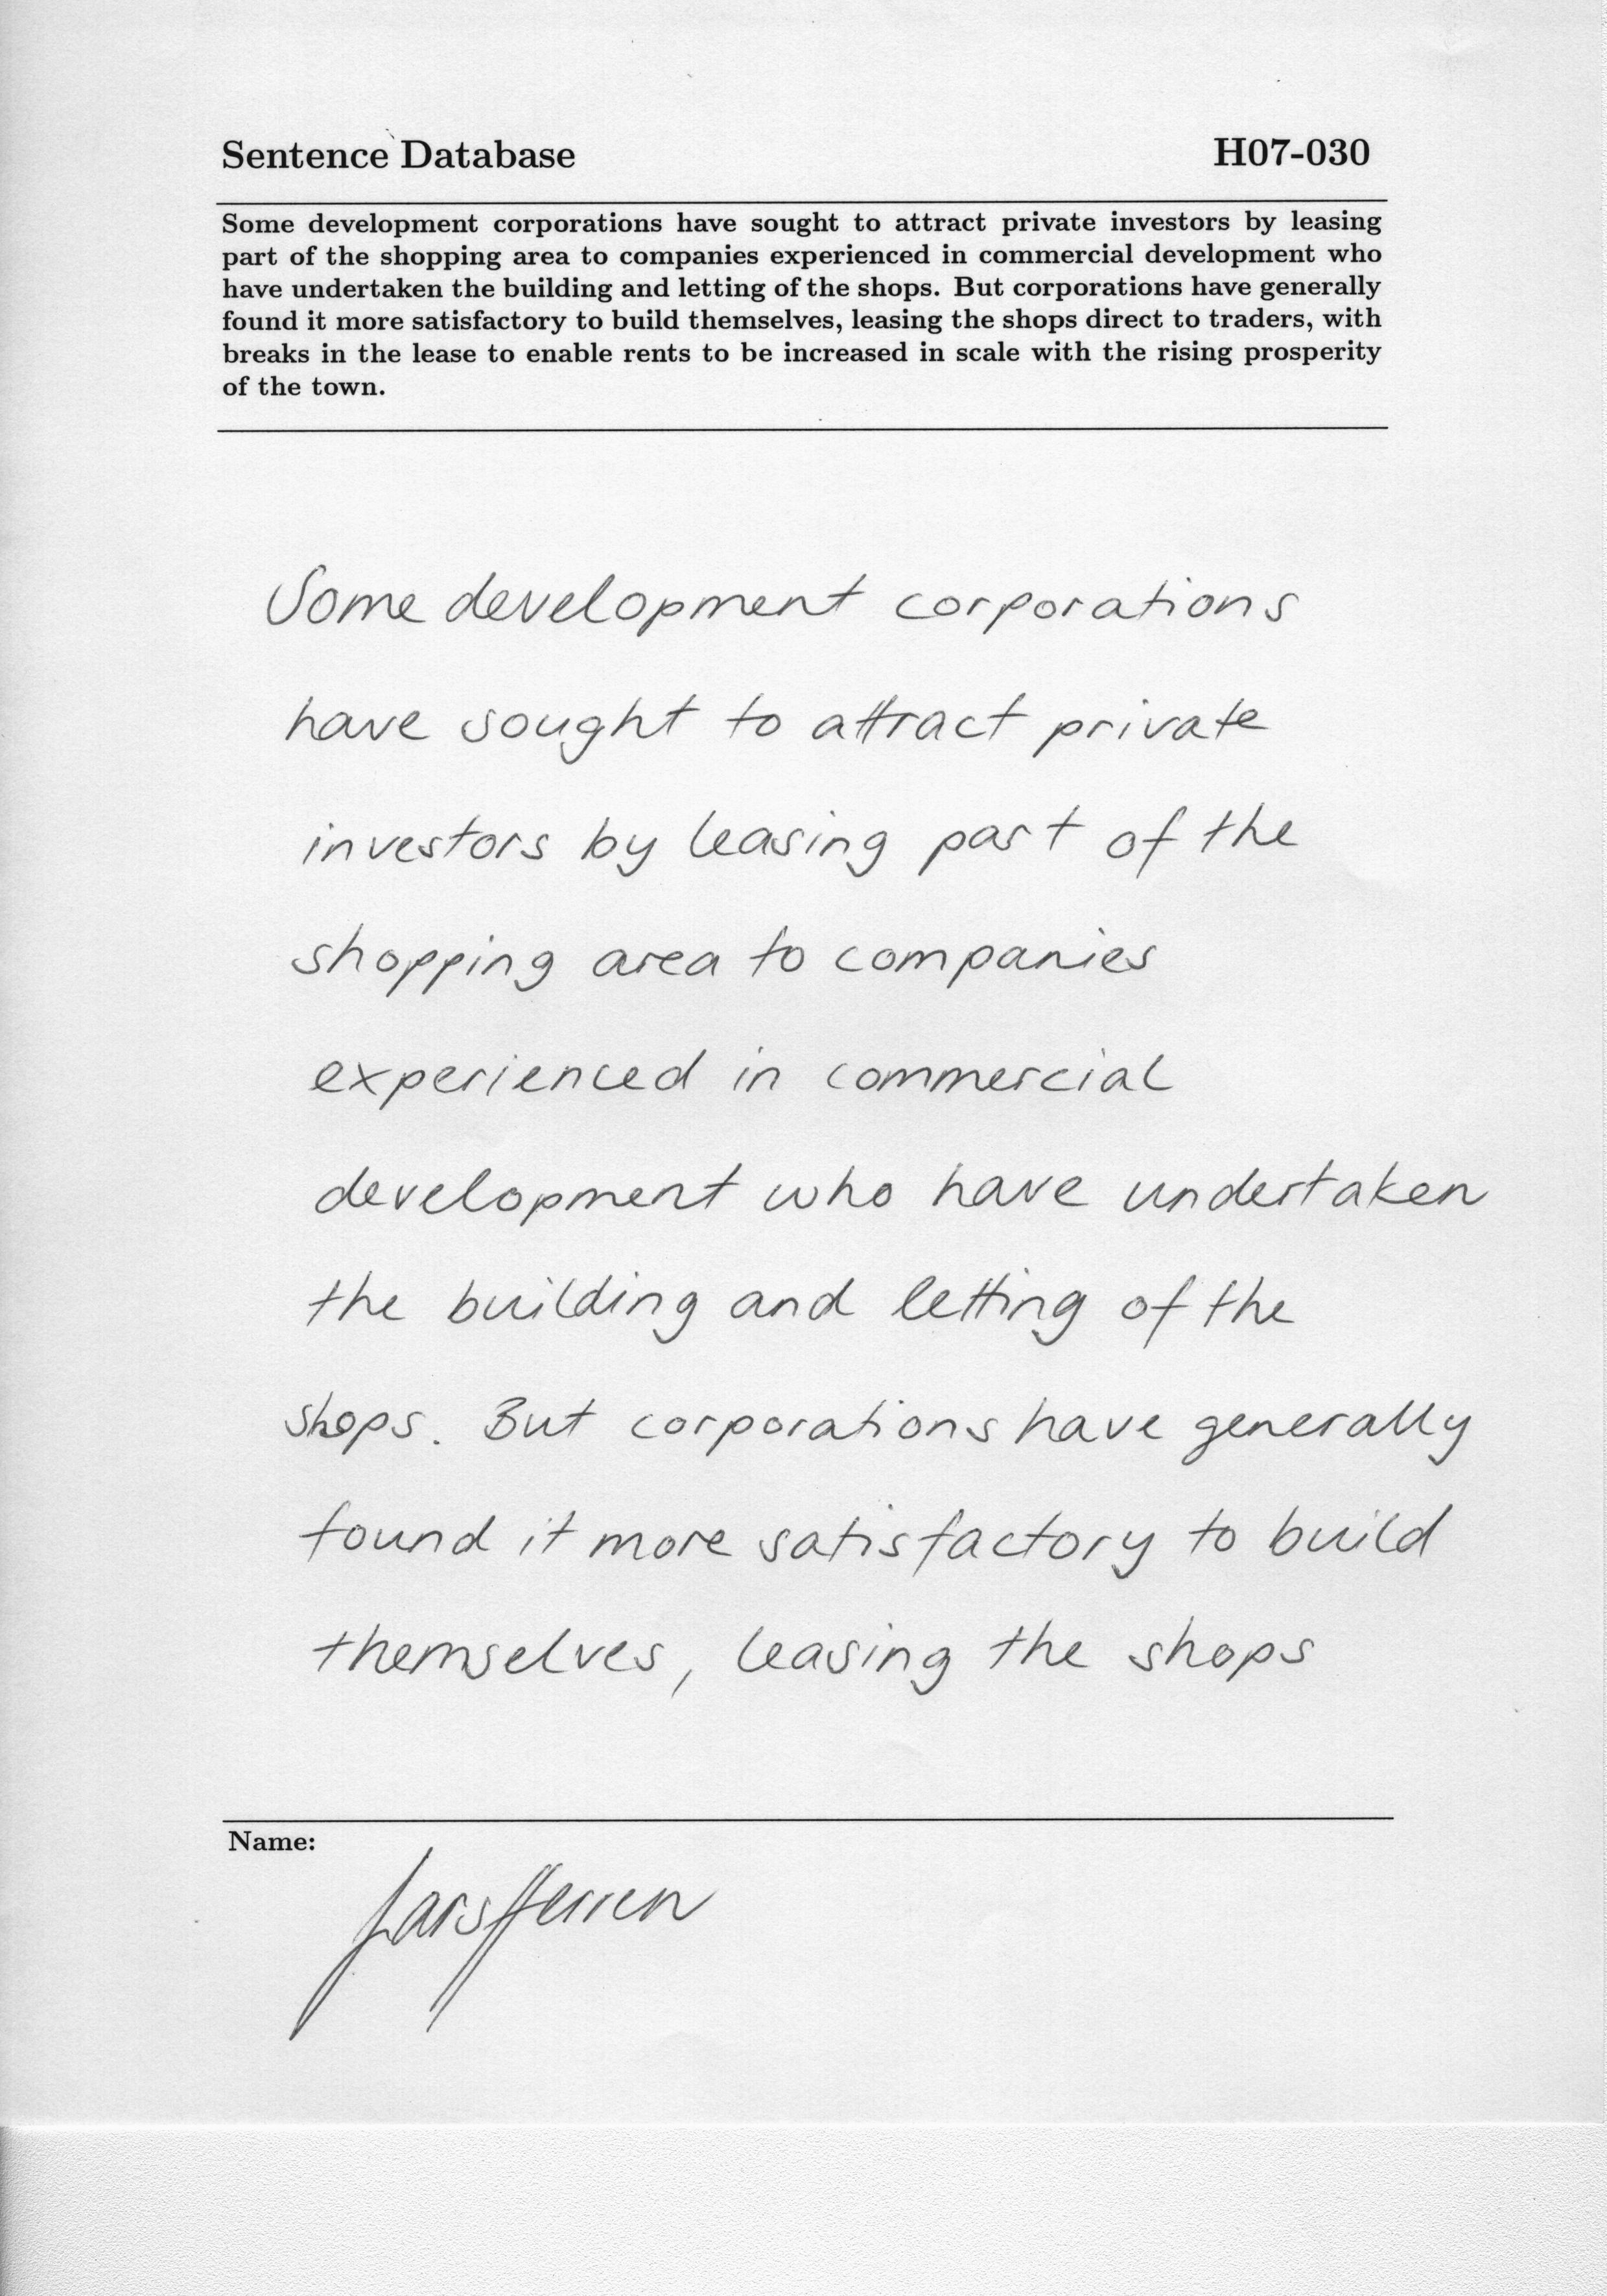 Sentence Database H07-030
Some development corporations have sought to attract private investors by leasing
part of the shopping area to companies experienced in commercial development who
have undertaken the building and letting of the shops. But corporations have generally
found it more satisfactory to build themselves, leasing the shops direct to traders, with
breaks in the lease to enable rents to be increased in scale with the rising prosperity
of the town.
Some development corporations
have sought to attract private
investors by leasing part of the
shopping area to companies
experienced in commercial
development who have undertaken
the building and letting of the
shops. But corporations have generally
found it more satisfactory to build
themselves, leasing the shops
Name:
Lars